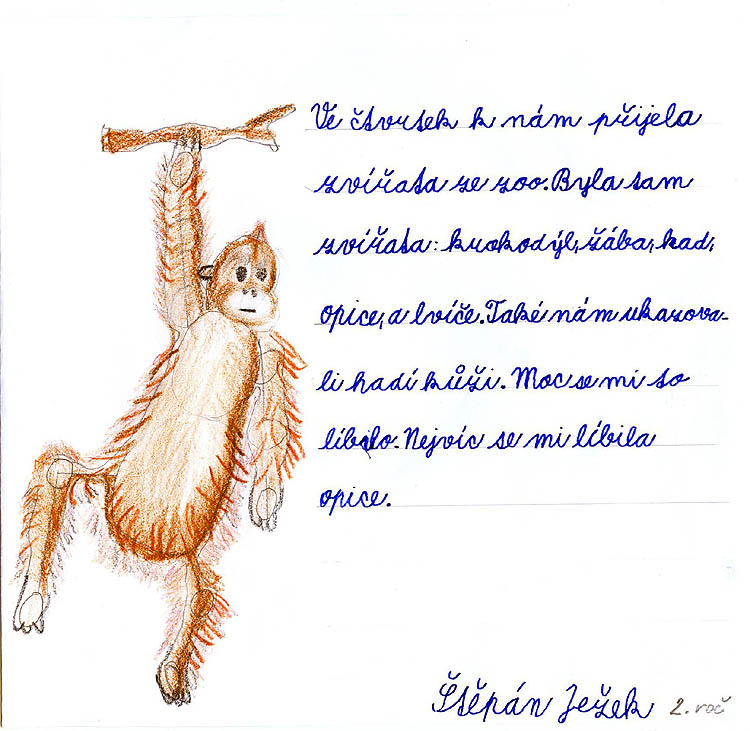 Ve čtvrtek k nám přijela
zvířata ze zoo. Byla tam
zvířata: krokodýl, žába, had,
opice, a lvíče. Také nám ukazova-
li hadí kůži. Moc se mi to
líbilo. Nejvíc se mi líbila
opice.
Štěpán Ježek 2. roč